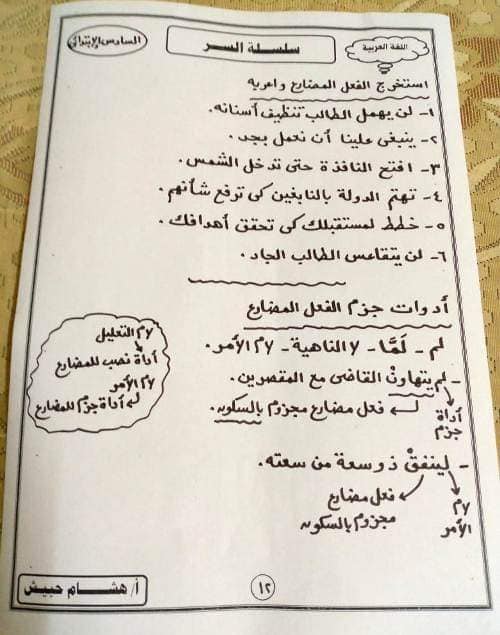 اللغة العربية
سلسلة السر
السادس الابتدائي
استخرج الفعل المضارع واعربه
١- لن يهمل الطالب تنظيف أسنانه.
٢- ينبغى علينا أن نعمل بجد.
٣- افتح النافذة حتى تدخل الشمس.
٤- تهتم الدولة بالنابغين كى ترفع شأنهم.
٥- خطط لمستقبلك كى تحقق أهدافك.
٦- لن يتقاعس الطالب الجاد.
أدوات جزم الفعل المضارع
لم - لمَّا - لا الناهية - لام الأمر.
- لم يتهاونْ القاضى مع المقصرين.
أداة جزم
فعل مضارع مجزوم بالسكون.
لام التعليل
أداة نصب للمضارع
لام الأمر
أداة جزم للمضارع
- لينفقْ ذو سعة من سعته.
لام الأمر
فعل مضارع
مجزوم بالسكون
١٢
أ/ هشام حبيش